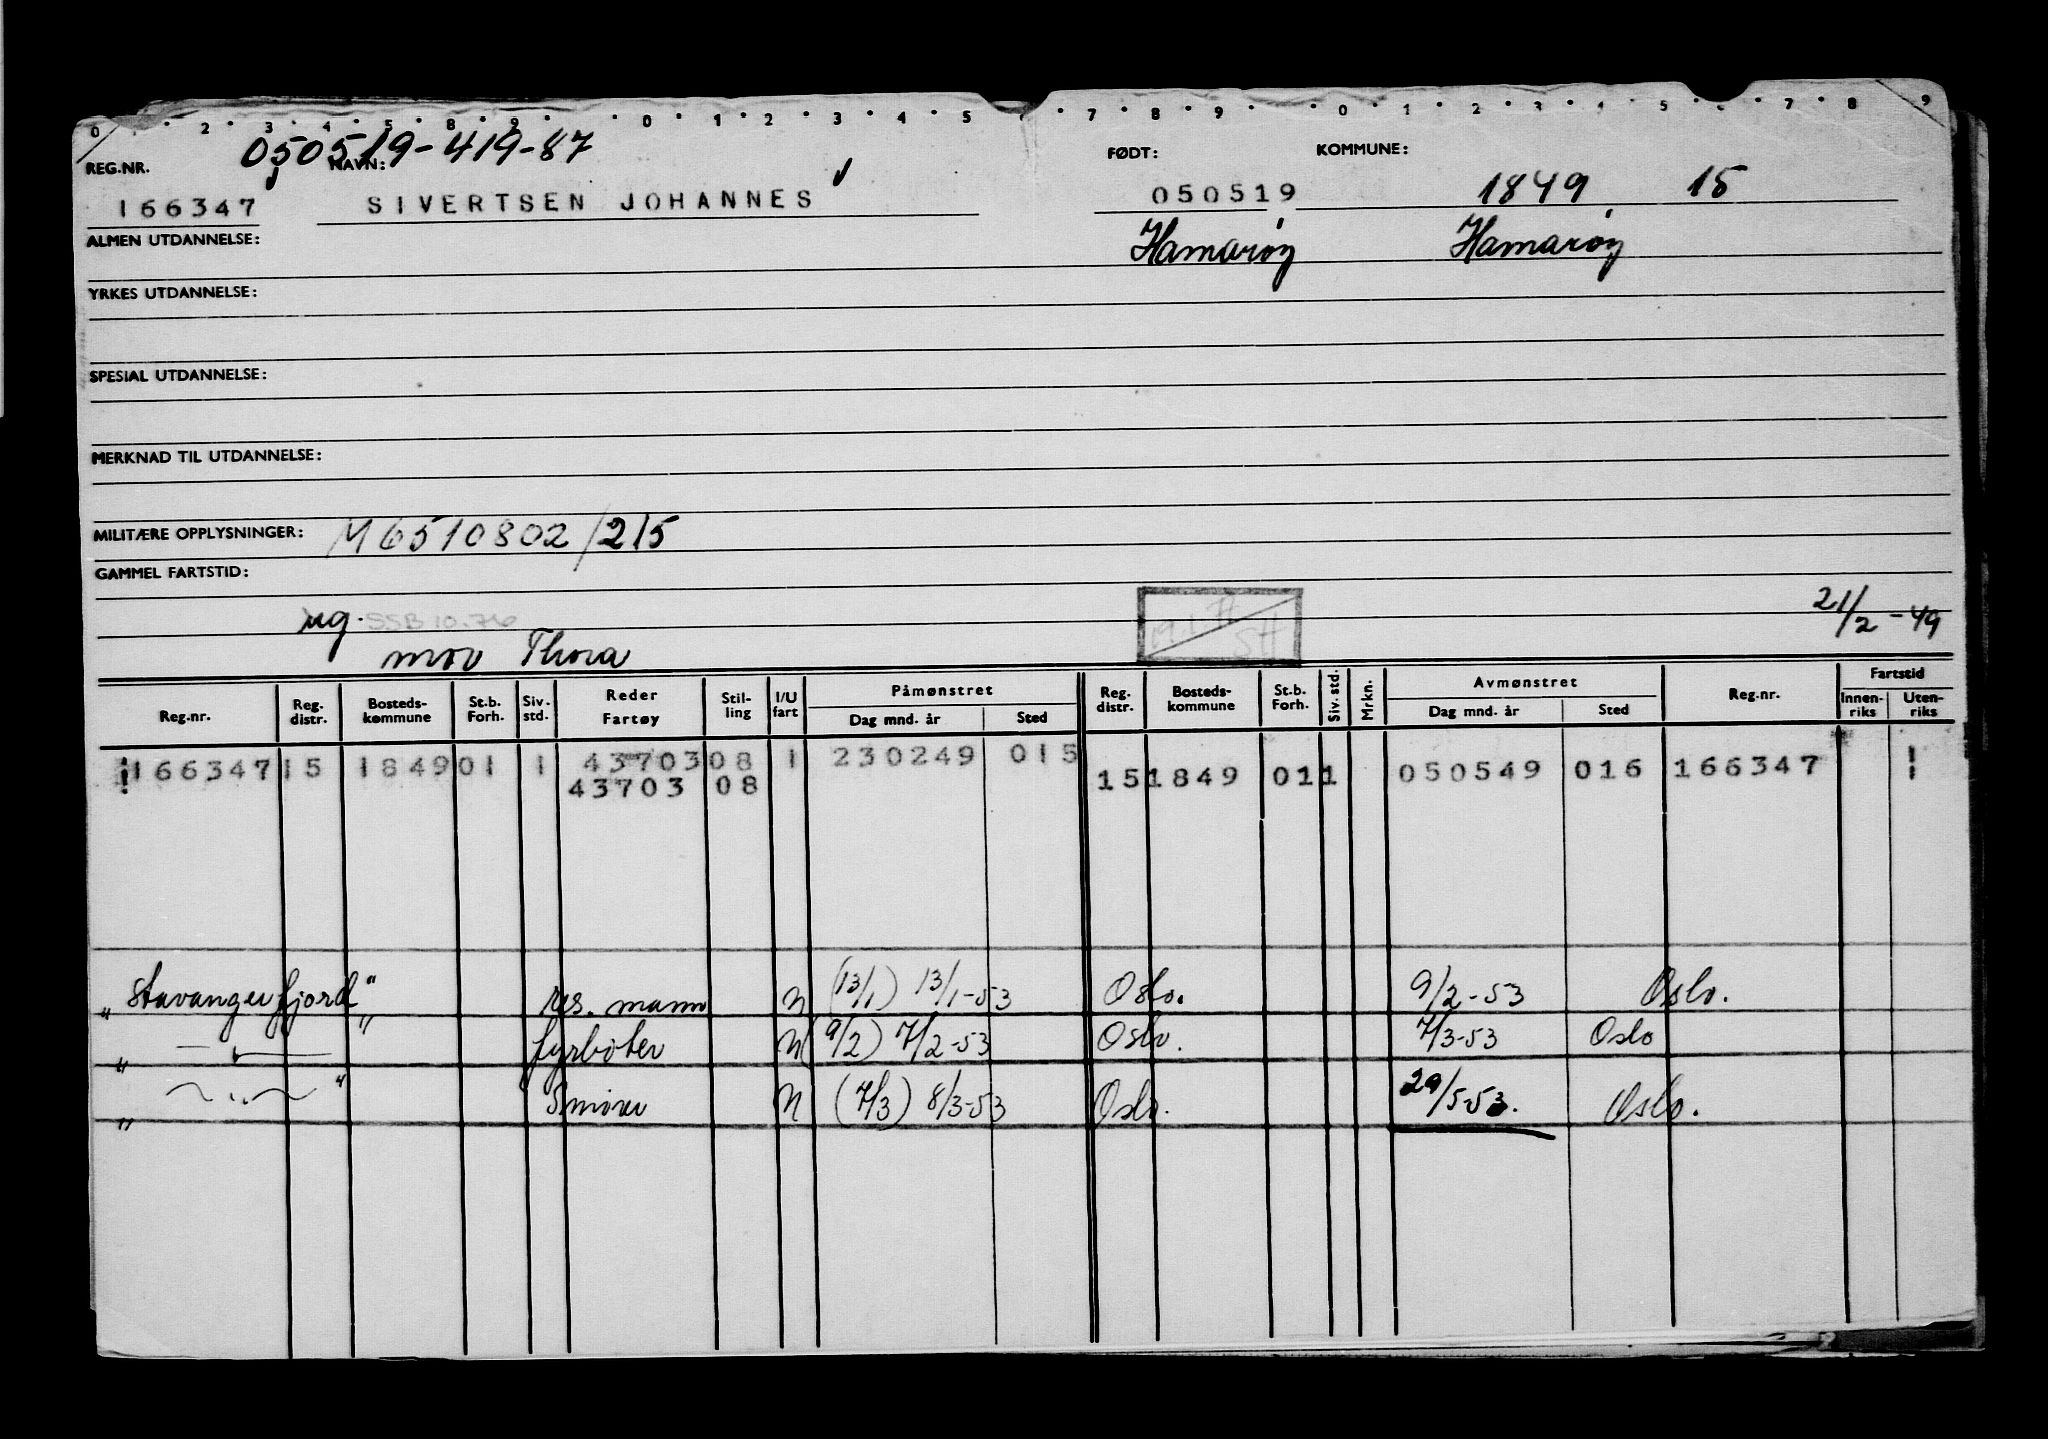 0 · · 2 · 3 · 4 · 5 · 8 · 9 · · 0 · 1 · 2 · 3 · 4 · 5 7 · 8 · 9 · · 0 · 1 · 2 · 3 · 4 · 5 · · 7 · 8 9
050519-419-87
REG.NR. NAVN: FØDT: KOMMUNE:
166347 SIVERTSEN JOHANNES 050519 1849 15
ALMEN UTDANNELSE: Hamarøy Hamarøy
YRKES UTDANNELSE:
SPESIAL UTDANNELSE:
MERKNAD TIL UTDANNELSE:
MILITÆRE OPPLYSNINGER: M6510802/215
GAMMEL FARTSTID:
reg. SSB 10.76 21/2-49
mor Thora
Reg.nr. Reg. distr. Bosteds-kommune St.b. Forh. Siv. std. Reder Fartøy Stil-ling I/U fart Påmønstret Dag mnd. år Sted Reg. distr. Bosteds-kommune St.b. Forh. Siv. std. Mrkn. Avmønstret Dag mnd. år Sted Reg.nr. Fartstid Innen-riks Uten-riks
166347 15 1849 01 1 43703 08 1 230249 015
43703 08 15 1849 01 1 050549 016 166347
"Stavangerfjord" res. mann N (13/1) 13/1-53 Oslo. 9/2-53 Oslo.
" — " — " fyrbøter N (9/2) 7/2-53 Oslo. 7/3-53 Oslo
" — " — " Smører N (7/3) 8/3-53 Oslo. 29/5-53. Oslo.